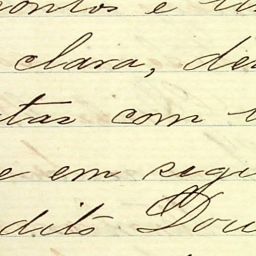 clara, de
tas com
e em segu
dito Dou